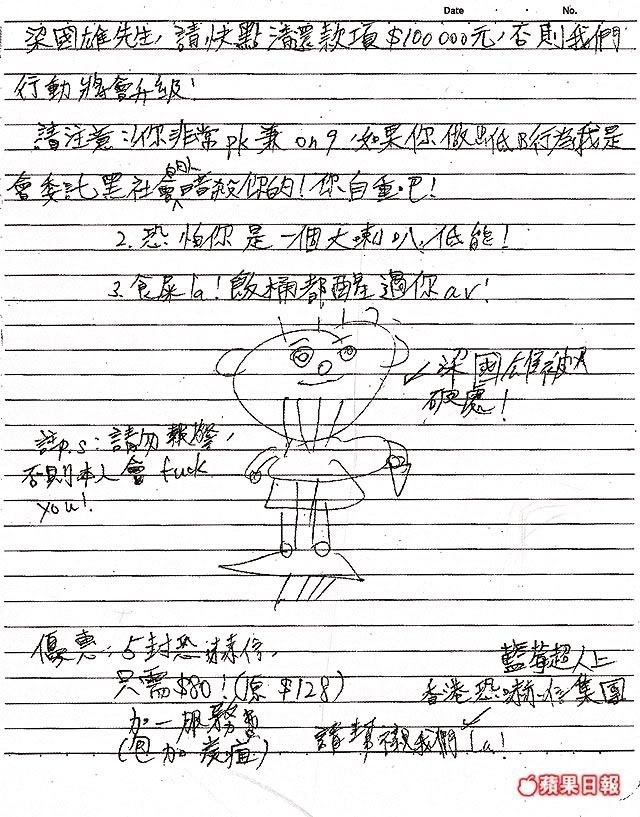 Date · · No.
梁國雄先生,請快點清還款項$100000元,否則我們
行動將會升級!
請注意:1.你非常pk兼on9,如果你做出低B行為我是
會委託黑社會的人暗殺你的!你自重吧!
2.恐怕你是一個大喇叭,低能!
3.食屎la!飯桶都醒過你ar!
梁國雄被
硬處!
註p.s:請勿報警,
否則本人會fuck
you!
優惠:5封恐嚇信,
只需$80!(原$128)
加一服務費
(包加炭疽)
藍莓超人上
香港恐嚇信集團
請幫襯我們la!
蘋果日報